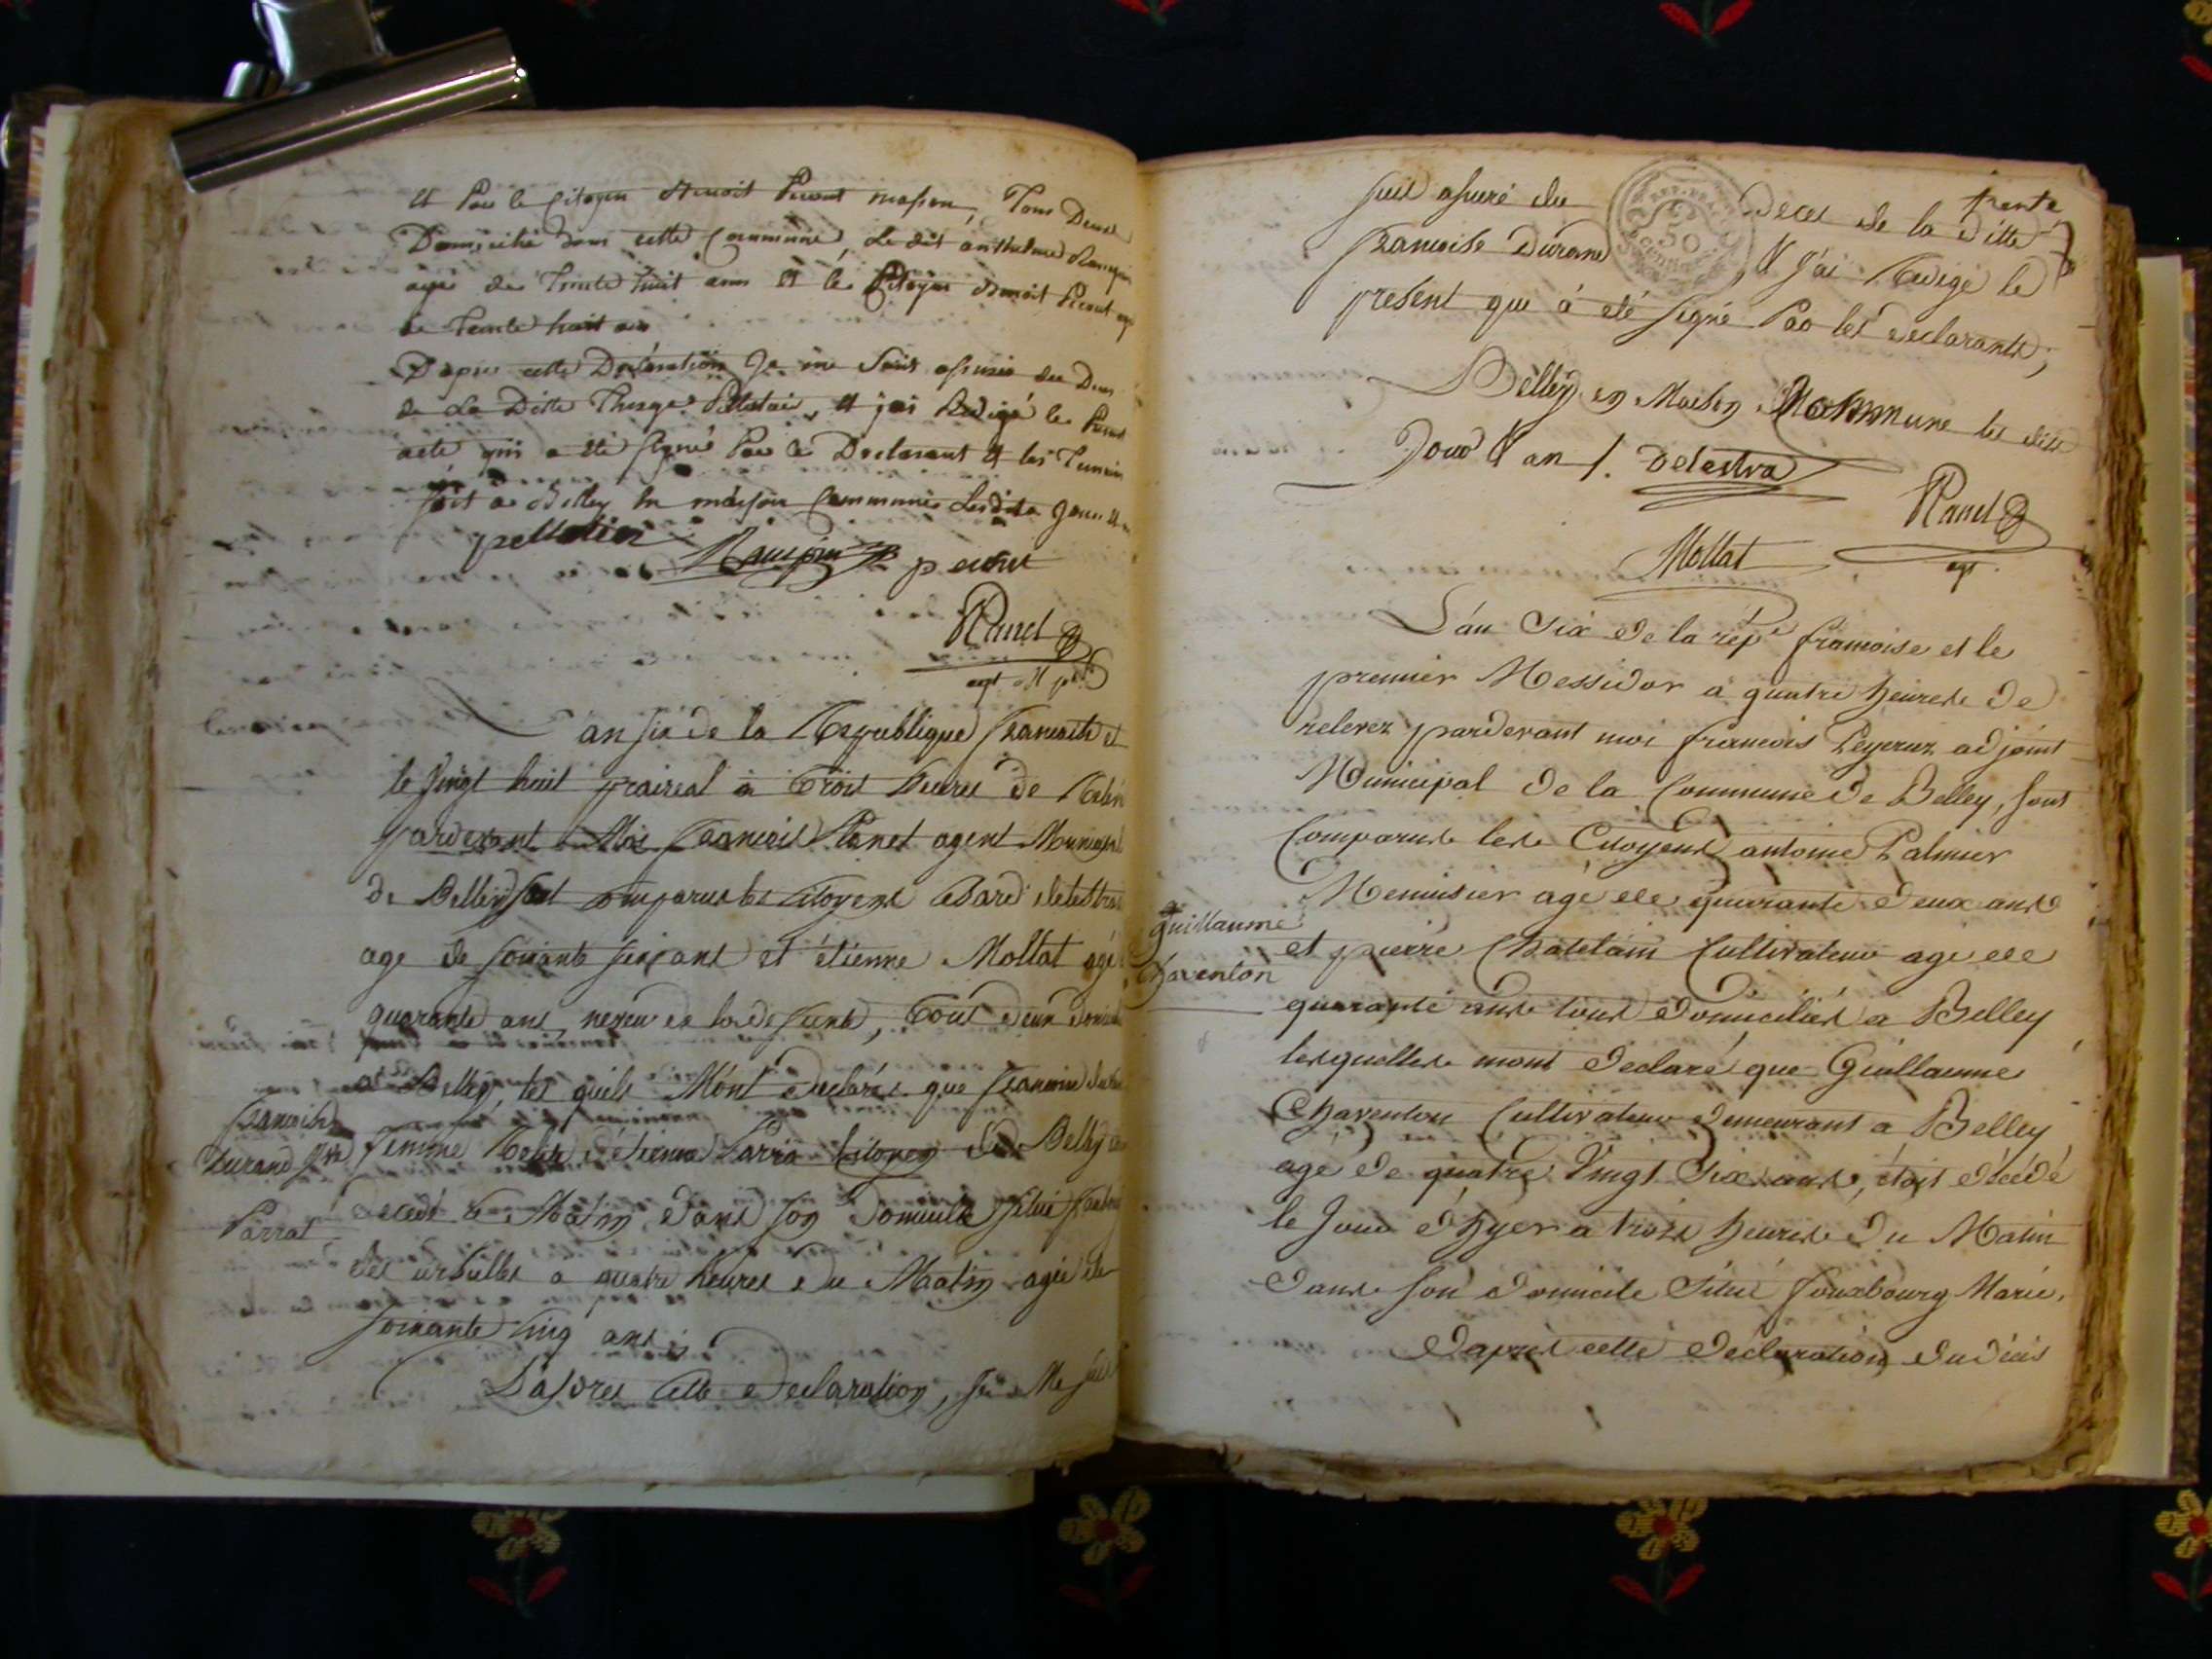 et Par le Citoyen Benoit Picout masson, Tous Deux
Domicilié dans cette Commune, Le dit anthelme
agé de Trente huit ans et le Citoyen Benoit Picout agé
de Trente huit ans
D'apres cette Declaration Je me Suis assurée du Deces
de La Ditte Pelletier, et j'ai Redigé le Present
acte qui a été signé Par le Declarant et les Temoin
fait a Belley en maison Commune Les dits Jour et an
pelletier picout
Ranet
agt M pal
L'an six de la Republique francoise et
le vingt huit prairial à trois heures de Relev
pardevant Moi francois Ranet agent Municipal
de Belley sont comparus les citoyens delestra
age de soixante six ans et étienne Mollat agé
quarante ans neveu de la defunte, tous deux domicil
a Belley, les quels M'ont declarés que francoise duran
femme d'étienne Parra Citoyen de Belley
decedé ce Matin dans son domicille situé faubourg
des urbulles a quatre heures du Matin agée de
soixante cinq ans;
D'apres cette Declaration, je Me suis
francoise
Durand fme
Parrat
trente
suis assuré du Deces de la ditte
francoise Durand, et j'ai Redigé le
present que à eté signé Par les declarants;
Belley en Maison Commune les dits
Jour et an /. Delestra
Ranet
agt
Mollat
50
L'an Six de la rep.e francoise et le
premier Messidor à quatre heures de
relevez pardevant moi francois Peyeruz adjoint
Municipal de la Commune de Belley, sont
Comparus les Citoyens antoine Palmier
Menuisier agé de quarante deux ans
et pierre Chatelain Cultivateur agé de
quarante ans tous domiciliés a Belley
lesquelles mont declaré que Guillaume
Chaventon Cultivateur demeurant a Belley
agé de quatre Vingt Six ans, étoit décédé
le Jour d'hyer a trois heures du Matin
dans son domicile Situé fouxbourg Marie.
D'après cette declaration du décès
guillaume
Chaventon